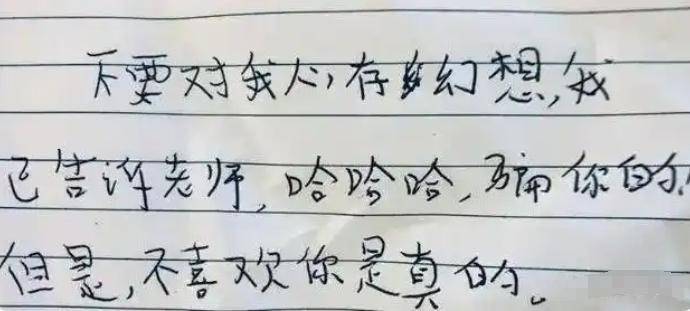 不要对我心存幻想,我
已告诉老师,哈哈哈,骗你的,
但是,不喜欢你是真的。